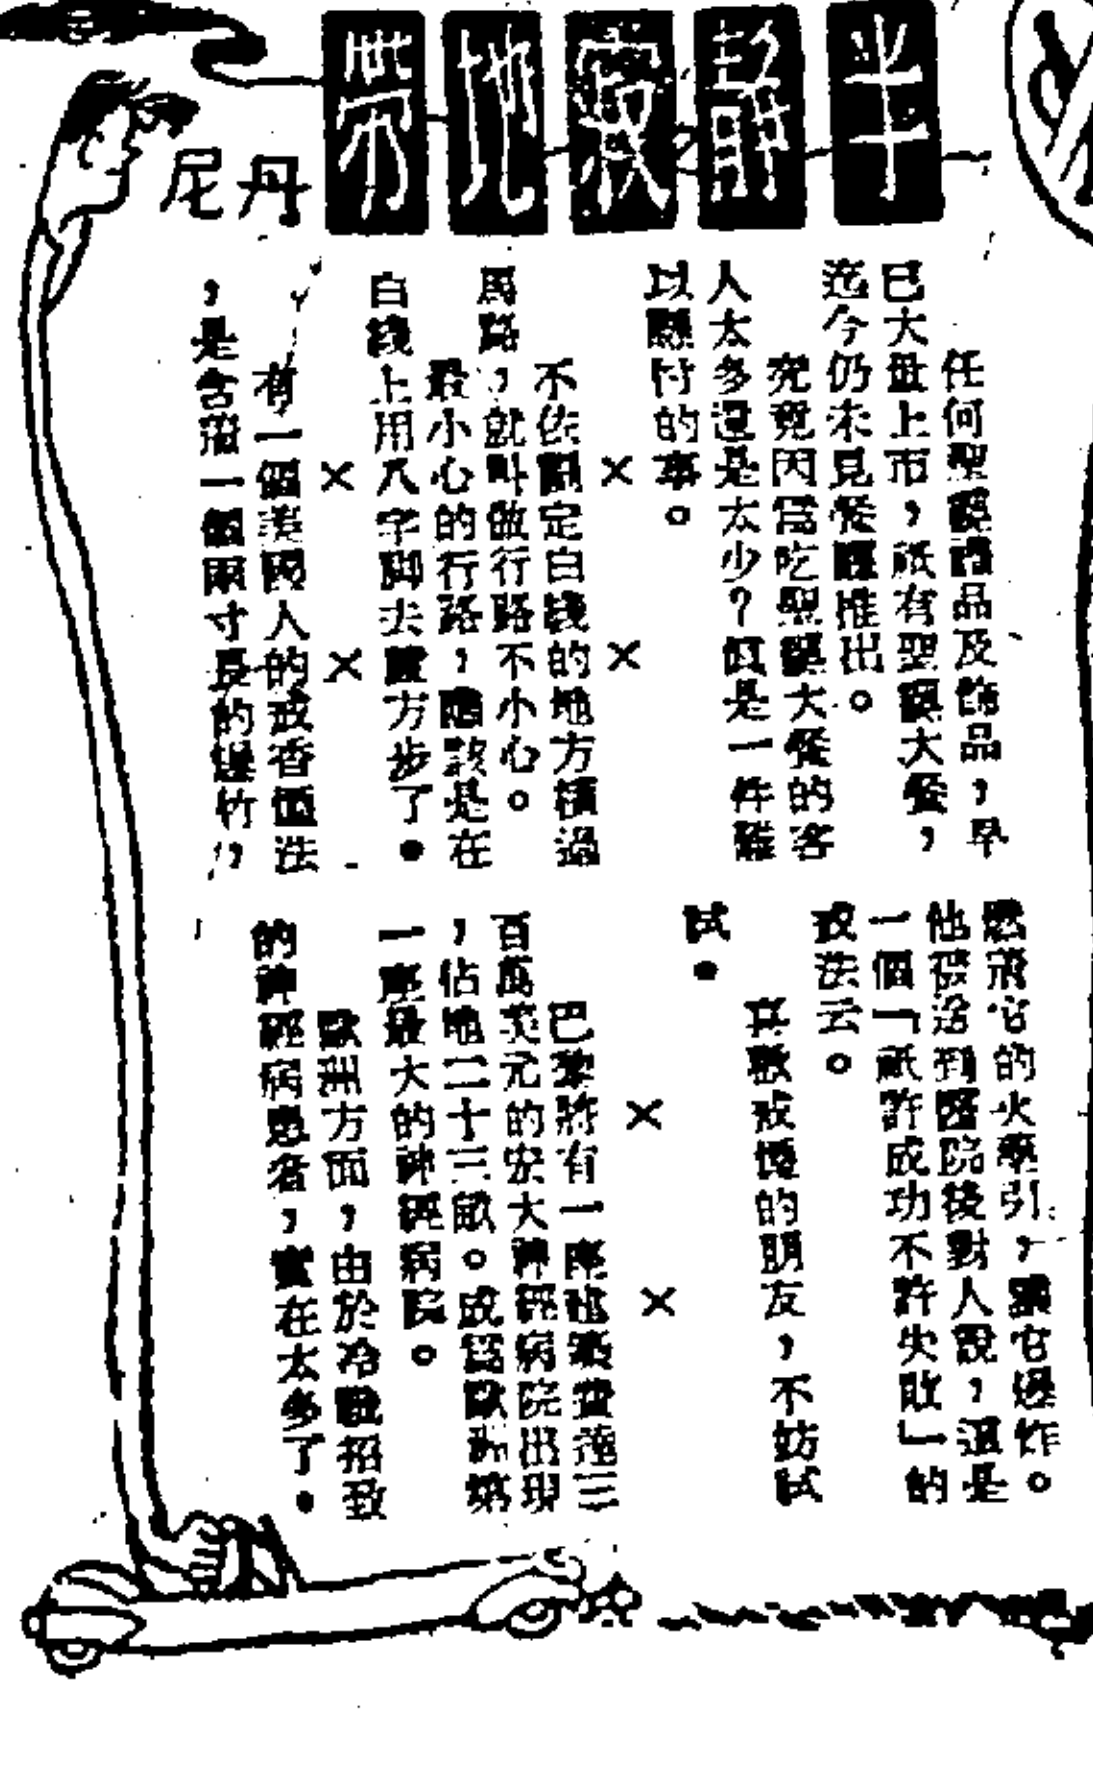 半靜寂地帶
丹尼
任何聖誕禮品及飾品,早
已大量上市,祇有聖誕大餐,
迄今仍未見餐譜推出。
究竟因爲吃聖誕大餐的客
人太多還是太少?眞是一件難
以懸忖的事。
× ×
不依劃定白綫的地方橫過
馬路,就叫做行路不小心。
最小心的行路,應該是在
白綫上用八字脚去踱方步了。
× ×
有一個美國人的戒香烟法
,是含着一個兩寸長的爆竹,
燃着它的火藥引,讓它爆炸。
他被送到醫院後對人說,這是
一個「祇許成功不許失敗」的
戒法云。
喜歡戒煙的朋友,不妨試
試。
× ×
巴黎將有一座建築費達三
百萬美元的宏大神經病院出現
,佔地二十三畝。成爲歐洲第
一座最大的神經病院。
歐洲方面,由於冷戰招致
的神經病患者,實在太多了。